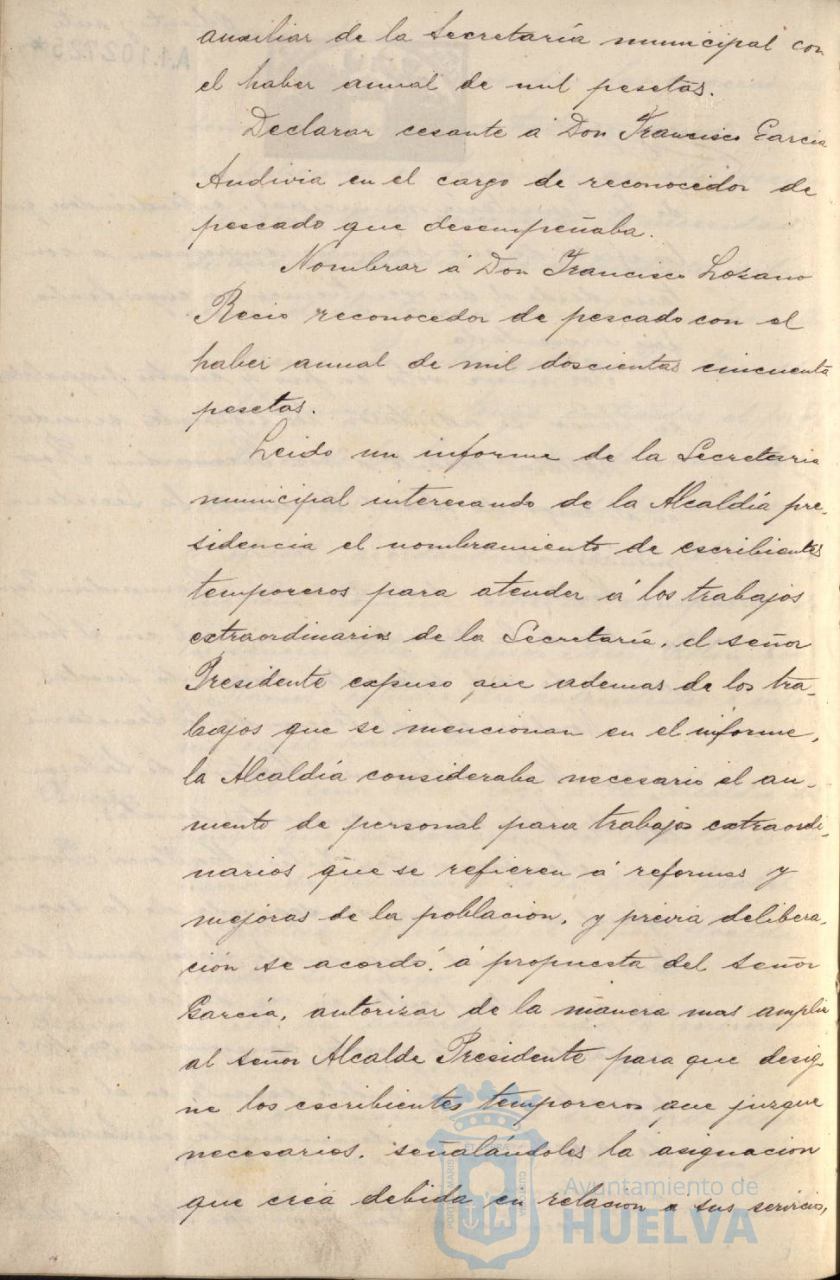 auxiliar de la Secretaría municipal con
el haber anual de mil pesetas.
Declarar cesante á Don Francisco García
Andivia en el cargo de reconocedor de
pescado que desempeñaba.
Nombrar á Don Francisco Lozano
Recio reconocedor de pescado con el
haber anual de mil doscientas cincuenta
pesetas.
Leido un informe de la Secretaria
municipal interesando de la Alcaldía pre-
sidencia el nombramiento de escribientes
temporeros para atender á los trabajos
extraordinarios de la Secretaría, el señor
Presidente expuso que ademas de los tra-
bajos que se mencionan en el informe,
la Alcaldía consideraba necesario el au-
mento de personal para trabajos extraordi-
narios que se refieren á reformas y
mejoras de la poblacion, y prévia delibera-
ción se acordó, á propuesta del señor
García, autorizar de la manera mas amplia
al señor Alcalde Presidente para que desig
ne los escribientes temporeros que juzgue
necesarios, señalándoles la asignacion
que crea debida en relacion a sus servicios,
Ayuntamiento de
HUELVA